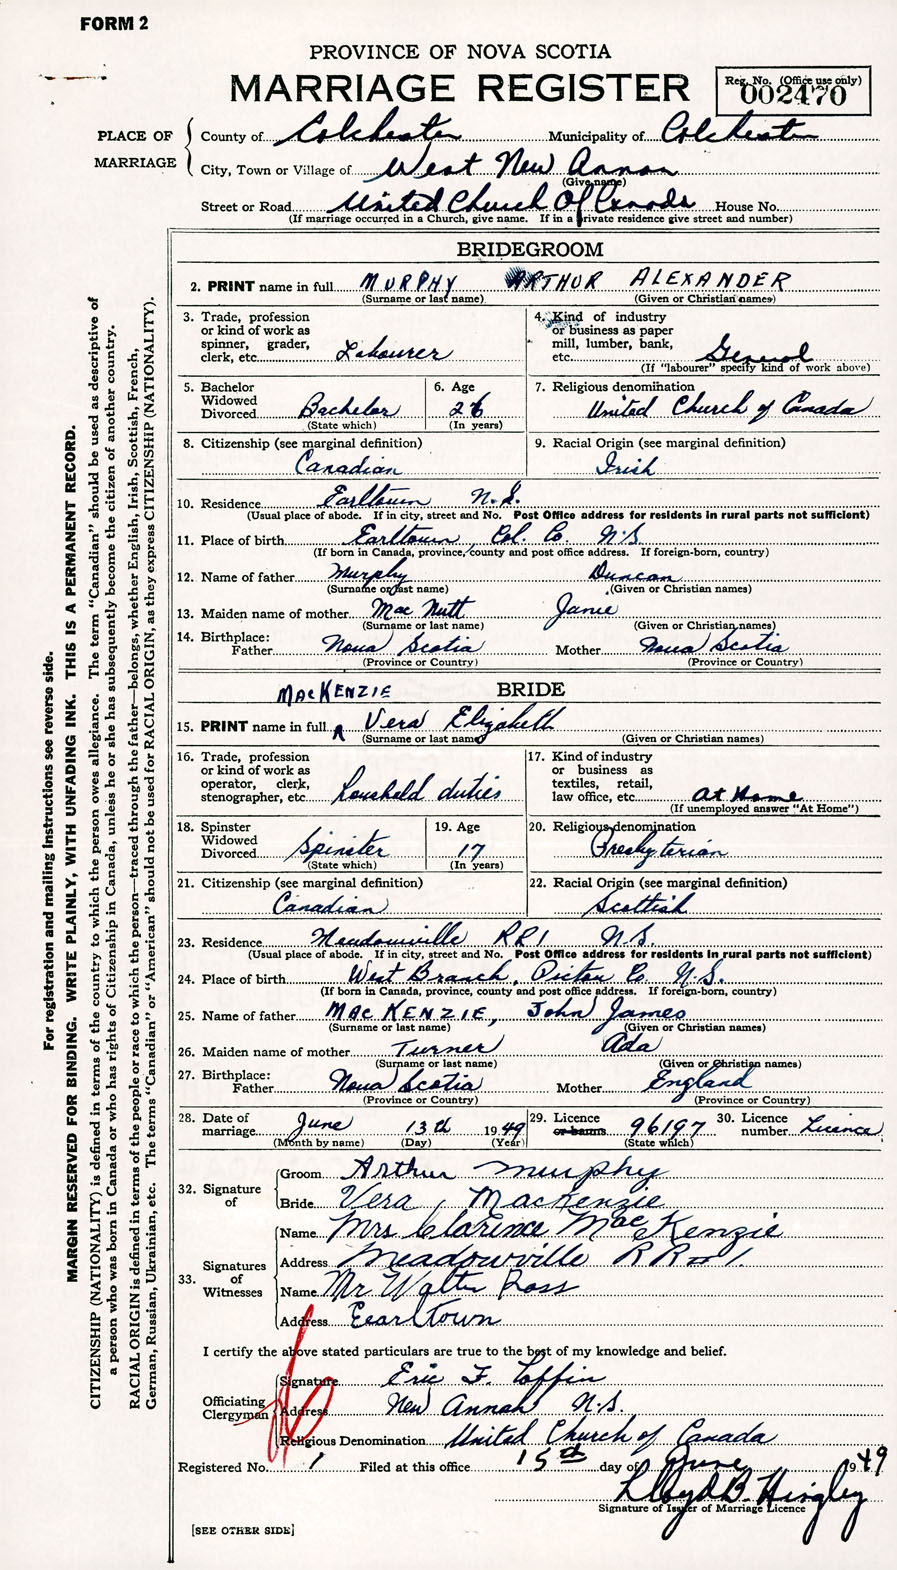 FORM 2
PROVINCE OF NOVA SCOTIA
MARRIAGE REGISTER
Reg. No. (Office use only)
002470
PLACE OF MARRIAGE
County of Colchester Municipality of Colchester
City, Town or Village of West New Annan
(Give name)
Street or Road United Church Of Canada House No.
(If marriage occurred in a Church, give name. If in a private residence give street and number)
BRIDEGROOM
2. PRINT name in full MURPHY ARTHUR ALEXANDER
(Surname or last name) (Given or Christian names)
3. Trade, profession or kind of work as spinner, grader, clerk, etc. Labourer
4. Kind of industry or business as paper mill, lumber, bank, etc. General
(If "labourer" specify kind of work above)
5. Bachelor Widowed Divorced Bachelor
(State which)
6. Age 26
(In years)
7. Religious denomination
United Church of Canada
8. Citizenship (see marginal definition)
Canadian
9. Racial Origin (see marginal definition)
Irish
10. Residence Earltown N.S.
(Usual place of abode. If in city, street and No. Post Office address for residents in rural parts not sufficient)
11. Place of birth Earltown, Col. Co. N.S.
(If born in Canada, province, county and post office address. If foreign-born, country)
12. Name of father Murphy Duncan
(Surname or last name) (Given or Christian names)
13. Maiden name of mother MacNutt Janie
(Surname or last name) (Given or Christian names)
14. Birthplace:
Father Nova Scotia Mother Nova Scotia
(Province or Country) (Province or Country)
MACKENZIE BRIDE
15. PRINT name in full Vera Elizabeth
(Surname or last name) (Given or Christian names)
16. Trade, profession or kind of work as operator, clerk, stenographer, etc. household duties
17. Kind of industry or business as textiles, retail, law office, etc. At Home
(If unemployed answer "At Home")
18. Spinster Widowed Divorced Spinster
(State which)
19. Age 17
(In years)
20. Religious denomination
Presbyterian
21. Citizenship (see marginal definition)
Canadian
22. Racial Origin (see marginal definition)
Scottish
23. Residence Meadowville RR1 N.S.
(Usual place of abode. If in city, street and No. Post Office address for residents in rural parts not sufficient)
24. Place of birth West Branch, Pictou Co. N.S.
(If born in Canada, province, county and post office address. If foreign-born, country)
25. Name of father MACKENZIE, John James
(Surname or last name) (Given or Christian names)
26. Maiden name of mother Turner Ada
(Surname or last name) (Given or Christian names)
27. Birthplace:
Father Nova Scotia Mother England
(Province or Country) (Province or Country)
28. Date of marriage June 13th 1949
(Month by name) (Day) (Year)
29. Licence or banns 96197
(State which)
30. Licence number Licence
32. Signature of
Groom Arthur Murphy
Bride Vera, Mackenzie
33. Signatures of Witnesses
Name Mrs Clarence MacKenzie
Address Meadowville RR no 1.
Name Mr Walter Ross
Address Eearltown
I certify the above stated particulars are true to the best of my knowledge and belief.
Officiating Clergyman
Signature Eric F. Toffin
Address New Annan N.S.
Religious Denomination United Church of Canada
Registered No. 1 Filed at this office 15th day of June 1949
Lloyd B. Hingley
Signature of Issuer of Marriage Licence
[SEE OTHER SIDE]
For registration and mailing instructions see reverse side.
MARGIN RESERVED FOR BINDING. WRITE PLAINLY, WITH UNFADING INK. THIS IS A PERMANENT RECORD.
CITIZENSHIP (NATIONALITY) is defined in terms of the country to which the person owes allegiance. The term "Canadian" should be used as descriptive of
a person who was born in Canada or who has rights of Citizenship in Canada, unless he or she has subsequently become the citizen of another country.
RACIAL ORIGIN is defined in terms of the people or race to which the person—traced through the father—belongs, whether English, Irish, Scottish, French,
German, Russian, Ukrainian, etc. The terms "Canadian" or "American" should not be used for RACIAL ORIGIN, as they express CITIZENSHIP (NATIONALITY).